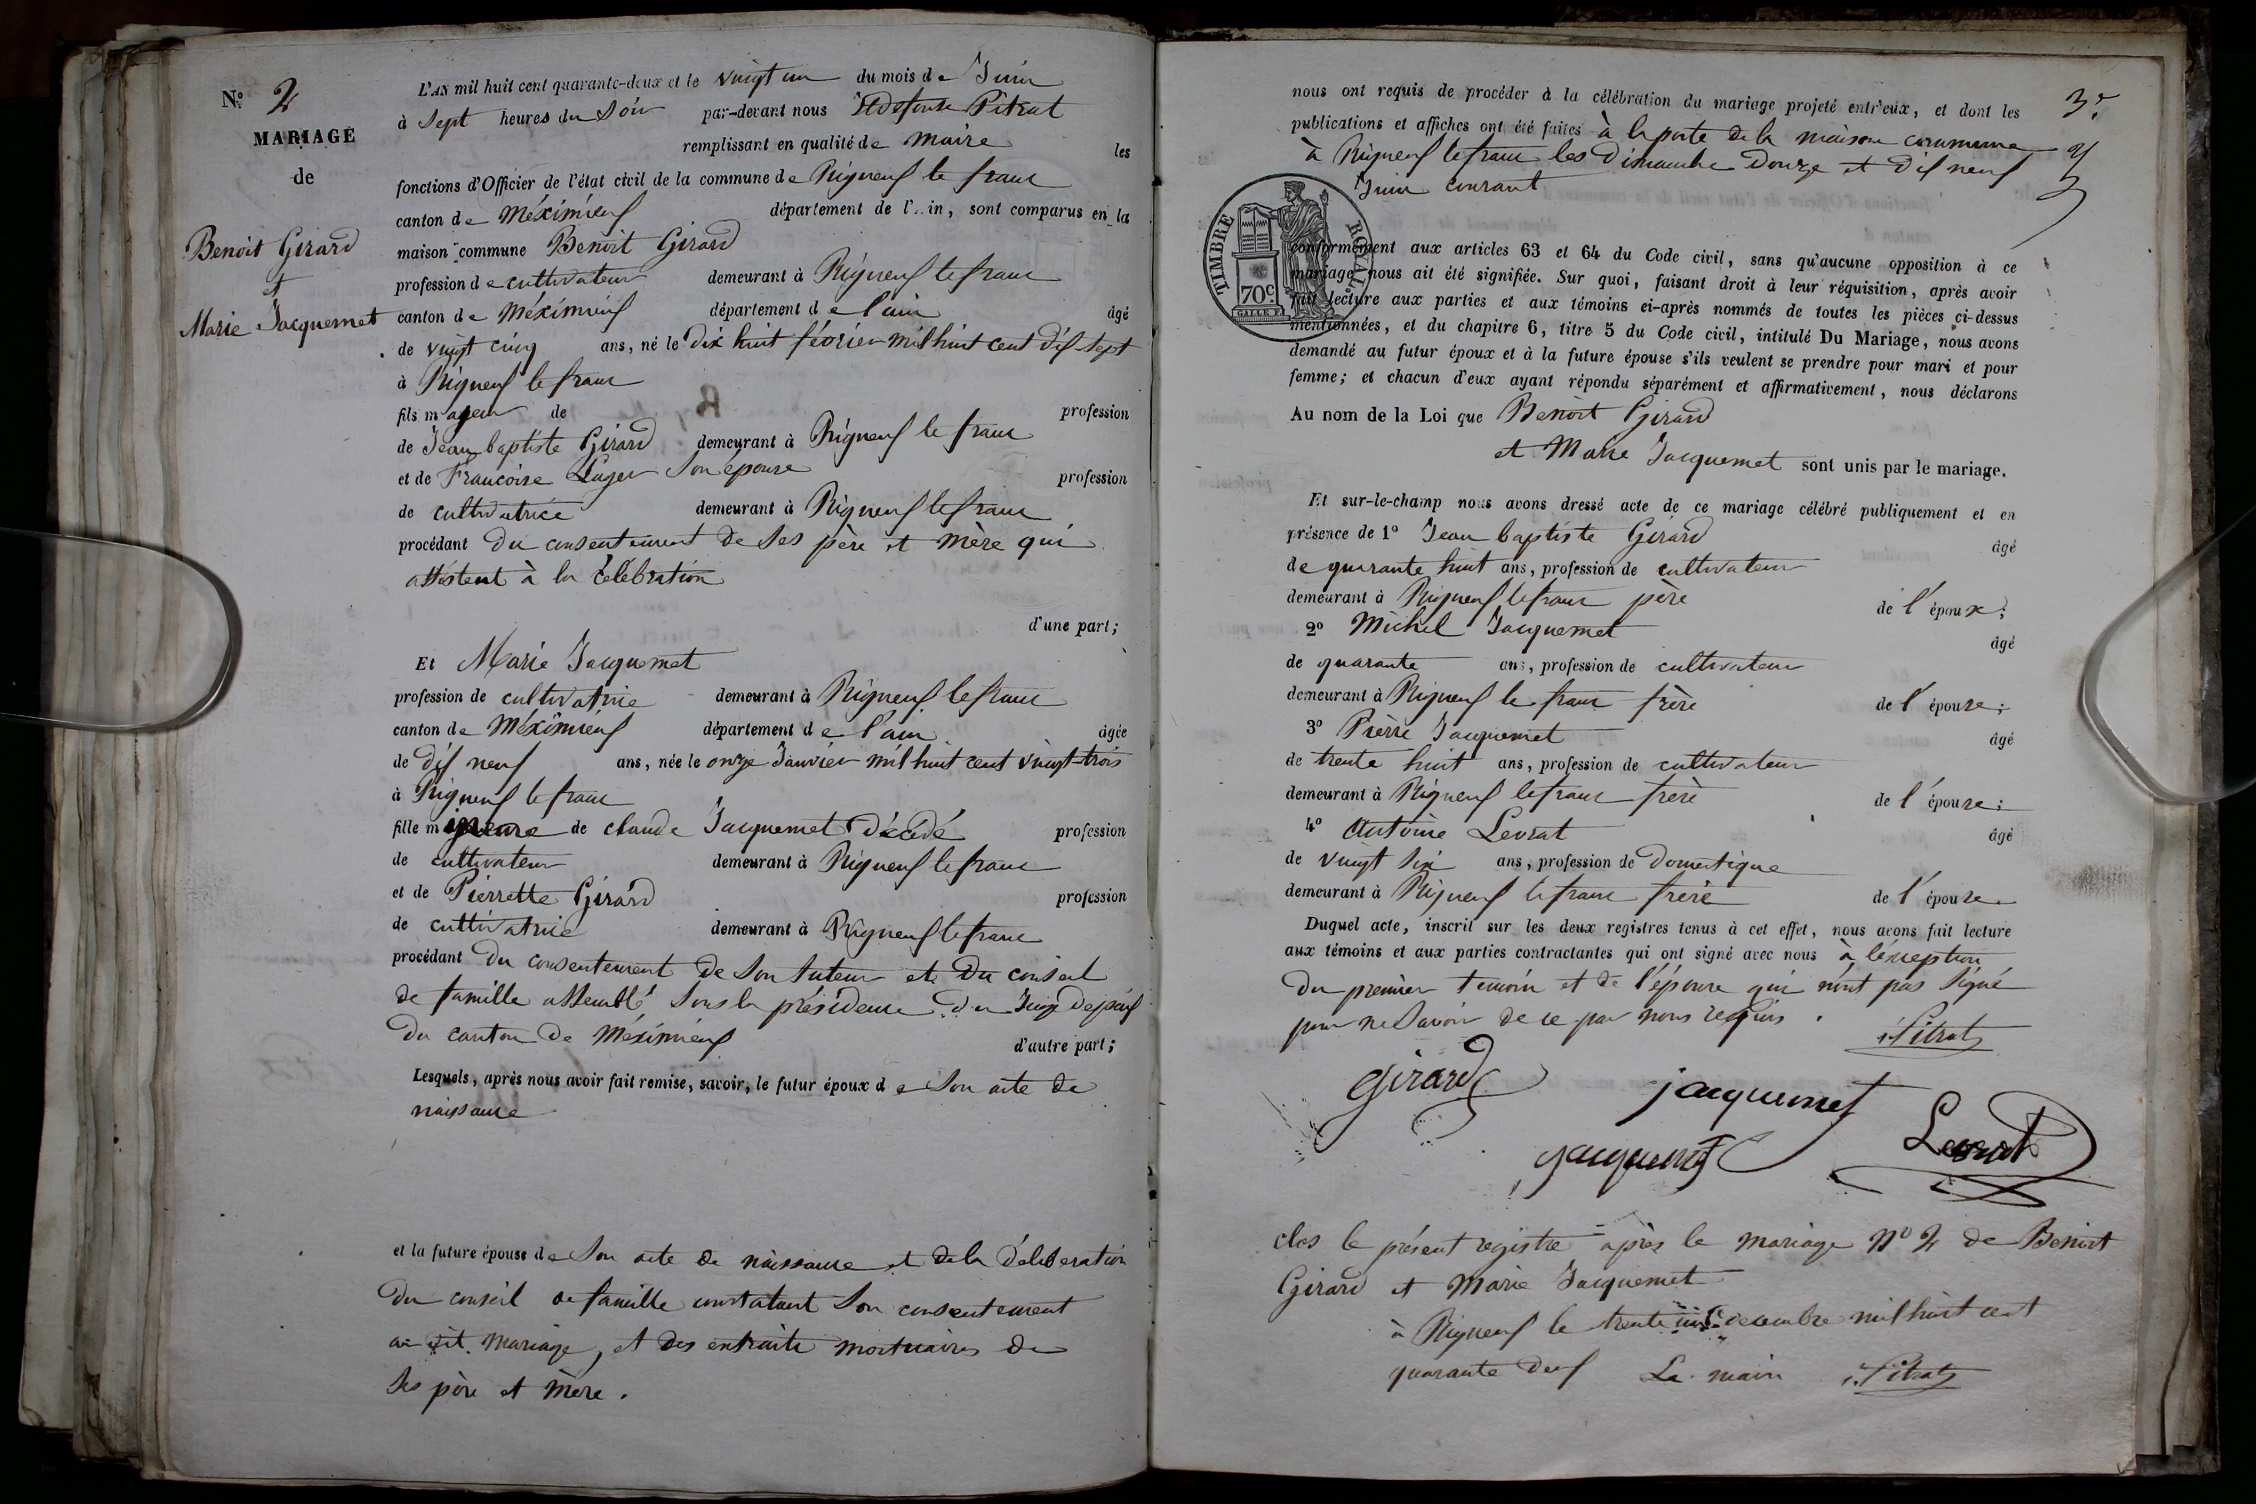 N.º 2
MARIAGE
de
Benoit Girard
et
Marie Jacquemet
L'AN mil huit cent quarante-deux et le vingt un du mois de Juin
à Sept heures du Soir par-devant nous Ildefonse Pitrat
remplissant en qualité de maire les
fonctions d'Officier de l'état civil de la commune de Rigneux le franc
canton de Méximieux département de l'Ain, sont comparus en la
maison commune Benoit Girard
profession de cultivateur demeurant à Rigneux le franc
canton de Méximieux département de l'ain âgé
de vingt cinq ans, né le dix huit février mil huit cent dix sept
à Rigneux le franc
fils majeur de profession
de Jean baptiste Girard demeurant à Rigneux le franc
et de Francoise Luger Son épouse profession
de cultivatrice demeurant à Rigneux le franc
procédant du consentement de Ses père et mère qui
assistent à la célébration
d'une part;
Et Marie Jacquemet
profession de cultivatrice demeurant à Rigneux le franc
canton de Méximieux département de l'ain âgée
de dix neuf ans, née le onze Janvier mil huit cent vingt trois
à Rigneux le franc
fille mineure de claude Jacquemet décédé profession
de cultivateur demeurant à Rigneux le franc
et de Pierrette Girard profession
de cultivatrice demeurant à Rigneux le franc
procédant du consentement de Son tuteur et du conseil
de famille assemblé Sous la présidence du Juge de paix
du canton de Méximieux d'autre part;
Lesquels, après nous avoir fait remise, savoir, le futur époux de Son acte de
naissance
et la future épouse de Son acte de naissance et de la délibération
du conseil de famille constatant Son consentement
au dit mariage, et des extraits mortuaires de
Ses père et mère.
3e
nous ont requis de procéder à la célébration du mariage projeté entr'eux, et dont les
publications et affiches ont été faites à la porte de la maison commune
à Rigneux le franc les dimanche douze et dix neuf
Juin courant
TIMBRE ROYAL
70 c.
conformément aux articles 63 et 64 du Code civil, sans qu'aucune opposition à ce
mariage nous ait été signifiée. Sur quoi, faisant droit à leur réquisition, après avoir
fait lecture aux parties et aux témoins ci-après nommés de toutes les pièces ci-dessus
mentionnées, et du chapitre 6, titre 5 du Code civil, intitulé Du Mariage, nous avons
demandé au futur époux et à la future épouse s'ils veulent se prendre pour mari et pour
femme; et chacun d'eux ayant répondu séparément et affirmativement, nous déclarons
Au nom de la Loi que Benoit Girard
et Marie Jacquemet sont unis par le mariage.
Et sur-le-champ nous avons dressé acte de ce mariage célébré publiquement et en
présence de 1º Jean baptiste Girard âgé
de quarante huit ans, profession de cultivateur
demeurant à Rigneux le franc père de l'époux;
2º Michel Jacquemet âgé
de quarante ans, profession de cultivateur
demeurant à Rigneux le franc frère de l'épouse;
3º Pierre Jacquemet âgé
de trente huit ans, profession de cultivateur
demeurant à Rigneux le franc frère de l'épouse;
4º Antoine Levrat âgé
de vingt Six ans, profession de domestique
demeurant à Rigneux le franc frère de l'épouse
Duquel acte, inscrit sur les deux registres tenus à cet effet, nous avons fait lecture
aux témoins et aux parties contractantes qui ont signé avec nous à l'exception
du premier temoin et de l'épouse qui n'ont pas Signé
pour ne Savoir de ce par nous requis.
Pitrat
Girard
jacquemet
jacquemet
Levrat
clos le présent registre après le mariage Nº 2 de Benoit
Girard et Marie Jacquemet
à Rigneux le trente un decembre mil huit cent
quarante deux Le maire Pitrat